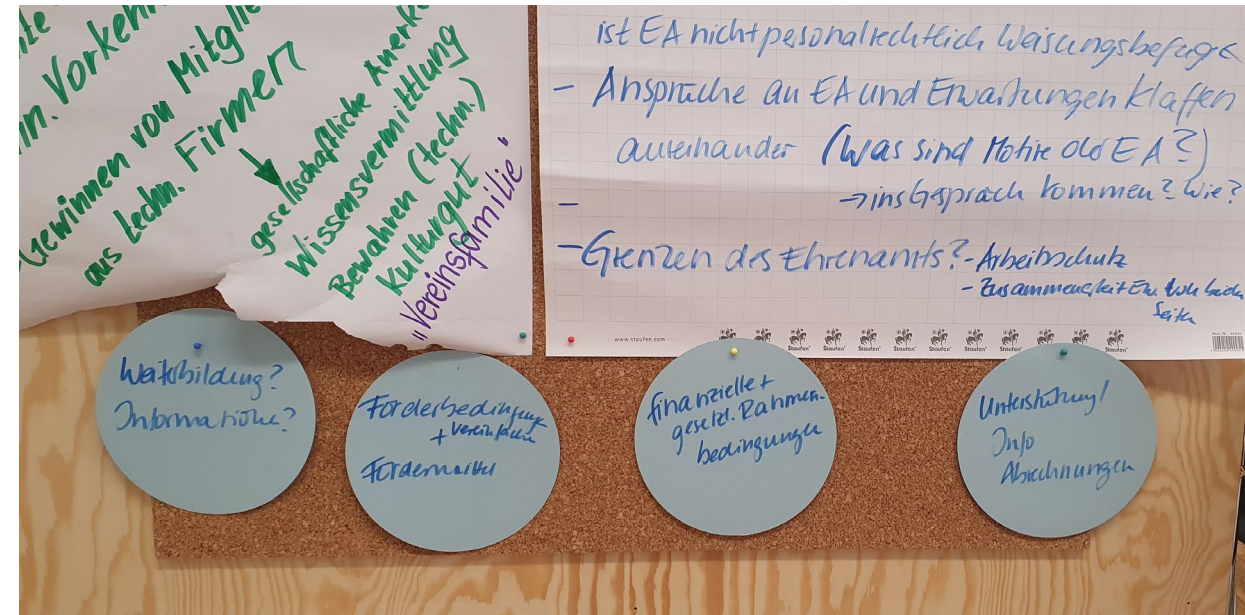 nn. Vorkenn
Gewinnen von Mitglie
aus techn. Firmen
gesellschaftliche Anerke
Wissensvermittlung
Bewahren (techn.)
Kulturgut
„Vereinsfamilie"
ist EA nicht personalrechtlich Weisungsbefugt
- Ansprüche an EA und Erwartungen klaffen
auseinander (Was sind Motive des EA?)
→ ins Gespräch kommen? Wie?
-
- Grenzen des Ehrenamts? - Arbeitsschutz
- Zusammenarbeit
Seiten
www.staufen.com
Staufen Staufen Staufen Staufen Staufen Staufen Staufen Staufen Staufen
Weiterbildung?
Informationen?
Förderbedingungen
+ vereinfachen
Fördermittel
finanzielle +
gesetzl. Rahmen-
bedingungen
Unterstützung/
Info
Abrechnungen